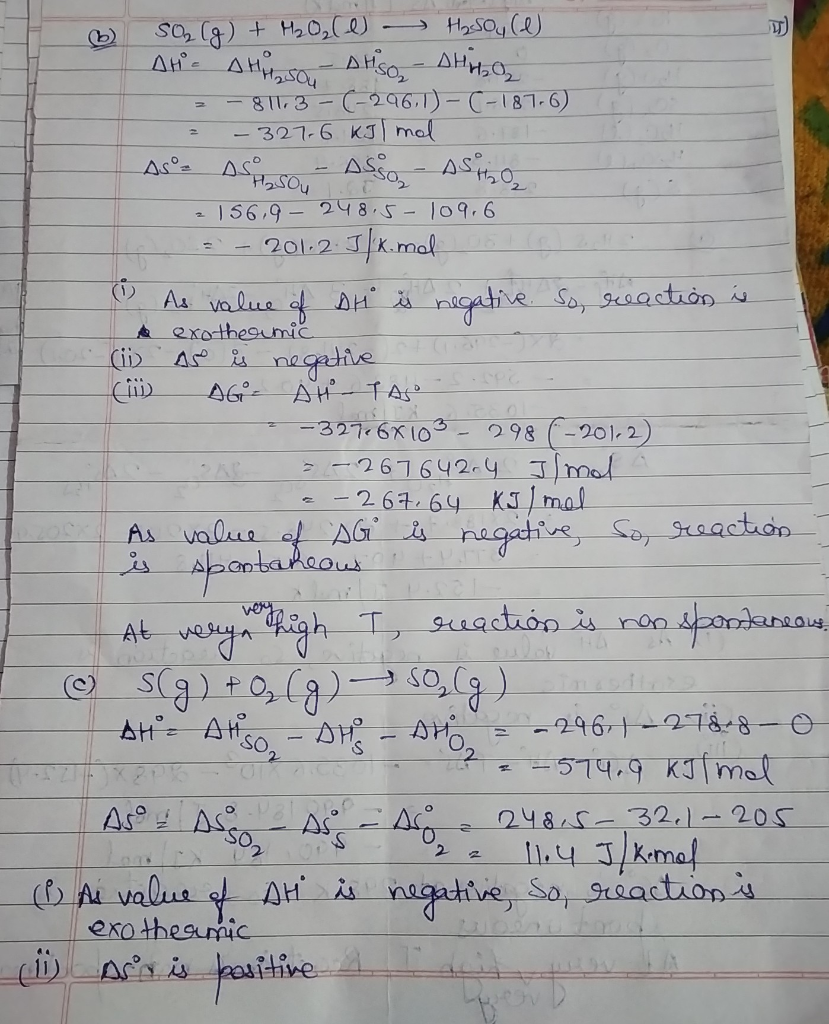 (b) SO₂(g) + H₂O₂(l) → H₂SO₄(l)
ΔH° = ΔH°H₂SO₄ – ΔH°SO₂ – ΔH°H₂O₂
= – 811.3 – (–296.1) – (–187.6)
= – 327.6 KJ/mol
ΔS° = ΔS°H₂SO₄ – ΔS°SO₂ – ΔS°H₂O₂
= 156.9 – 248.5 – 109.6
= – 201.2 J/K.mol
(i) As value of ΔH° is negative. So, reaction is
exothermic
(ii) ΔS° is negative
(iii) ΔG° = ΔH° – TΔS°
= –327.6×10³ – 298 (–201.2)
= –267642.4 J/mol
= –267.64 KJ/mol
As value of ΔG° is negative, So, reaction
is spontaneous
At very very high T, reaction is non spontaneous.
(c) S(g) + O₂(g) → SO₂(g)
ΔH° = ΔH°SO₂ – ΔH°S – ΔH°O₂ = –296.1 – 278.8 – 0
= –574.9 KJ/mol
ΔS° = ΔS°SO₂ – ΔS°S – ΔS°O₂ = 248.5 – 32.1 – 205
= 11.4 J/K.mol
(i) As value of ΔH° is negative, So, reaction is
exothermic
(ii) ΔS° is positive